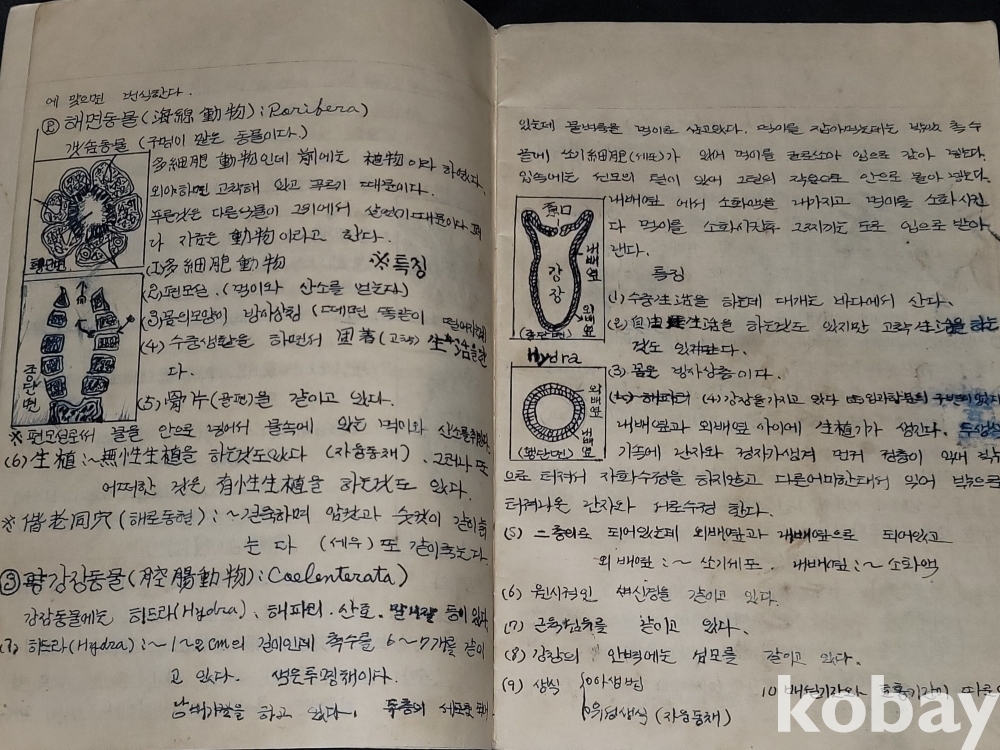 에 맞으면 번식한다.
② 해면동물(海綿動物): Porifera)
갯솜동물 (구멍이 많은 동물이다)
多細胞 動物인데 前에는 植物이라 하였다.
외야하면 고착해 있고 푸르기 때문이다.
푸른것은 다른식물이 그위에서 살았기때문이다
다 지금은 動物이라고 한다.
횡단면
(1)多細胞 動物 ※특징
(2)편모실. (먹이와 산소를 얻는다)
(3)몸의모양이 방사상칭 (떼면 똑같이
(4) 수중생활을 하면서 固着(고착) 生活을한
다.
종단면
(5) 骨片(골편)을 갖이고 있다.
※편모실로써 물을 안으로 넣어서 물속에 있는 먹이와 산소를
(6) 生植:~無性生植을 하는것도있다 (자웅동체). 그러나 또
어떠한 것은 有性生植을 하는것도 있다.
※ 偕老同穴(해로동혈): ~건축하며 암컷과 숫컷이 같이늙
는다 (세우) 또 같이죽는다.
③ 강장동물(腔腸動物): Coelenterata)
강장동물에는 히드라(Hydra), 해파리. 산호. 말미잘 등이 있다
(1) 히드라(Hydra): ~ 1~2cm의 길이인데 촉수를 6~7개를 같이
고 있다. 색은투명채이다.
을 하고 있다.
있는데 물벼룩을 먹이로 삼고있다. 먹이를 잡아먹는데는 촉수
끝에 쏘기細胞(세포)가 있어 먹이를 입으로 잡아 넣는다.
입속에는 섬모의 털이 있어 그털의 작용으로 안으로 몰아 넣는다.
내배엽 에서 소화액을 내가지고 먹이를 소화시킨
다 먹이를 소화시킨후 그찌끼는 도로 입으로 받아
낸다.
口
강장
내배엽
외배엽
(종단면)
특징
(1) 수중生活을 하는데 대개는 바다에서 산다.
(2) 自由生活을 하는것도 있지만 고착生活을 하는
것도 있다.
Hydra
(3) 몸은 방사상층이다.
외배엽
내배엽
(횡단면)
(4) 강장을가지고 있다
내배엽과 외배엽 사이에 生植기가 생긴다.
기속에 난자와 정자가생겨 먼저 정충이 있어
으로 터져서 자화수정을 하지않고 다른어미한태서 밖으로
터져나온 난자와 서로수정 한다.
(5) 二층이로 되어있는데 외배엽과 내배엽으로 되어있고
외배엽: ~ 쏘기세포. 내배엽: ~ 소화액
(6) 원시적인 신경을 같이고 있다.
(7) 근육섬유를 같이고 있다.
(8) 강장의 안벽에는 섬모를 같이고 있다.
(9) 생식 아생법
유성생식 (자웅동체)
10 배설기관와 호흡기관이 따로
kobay